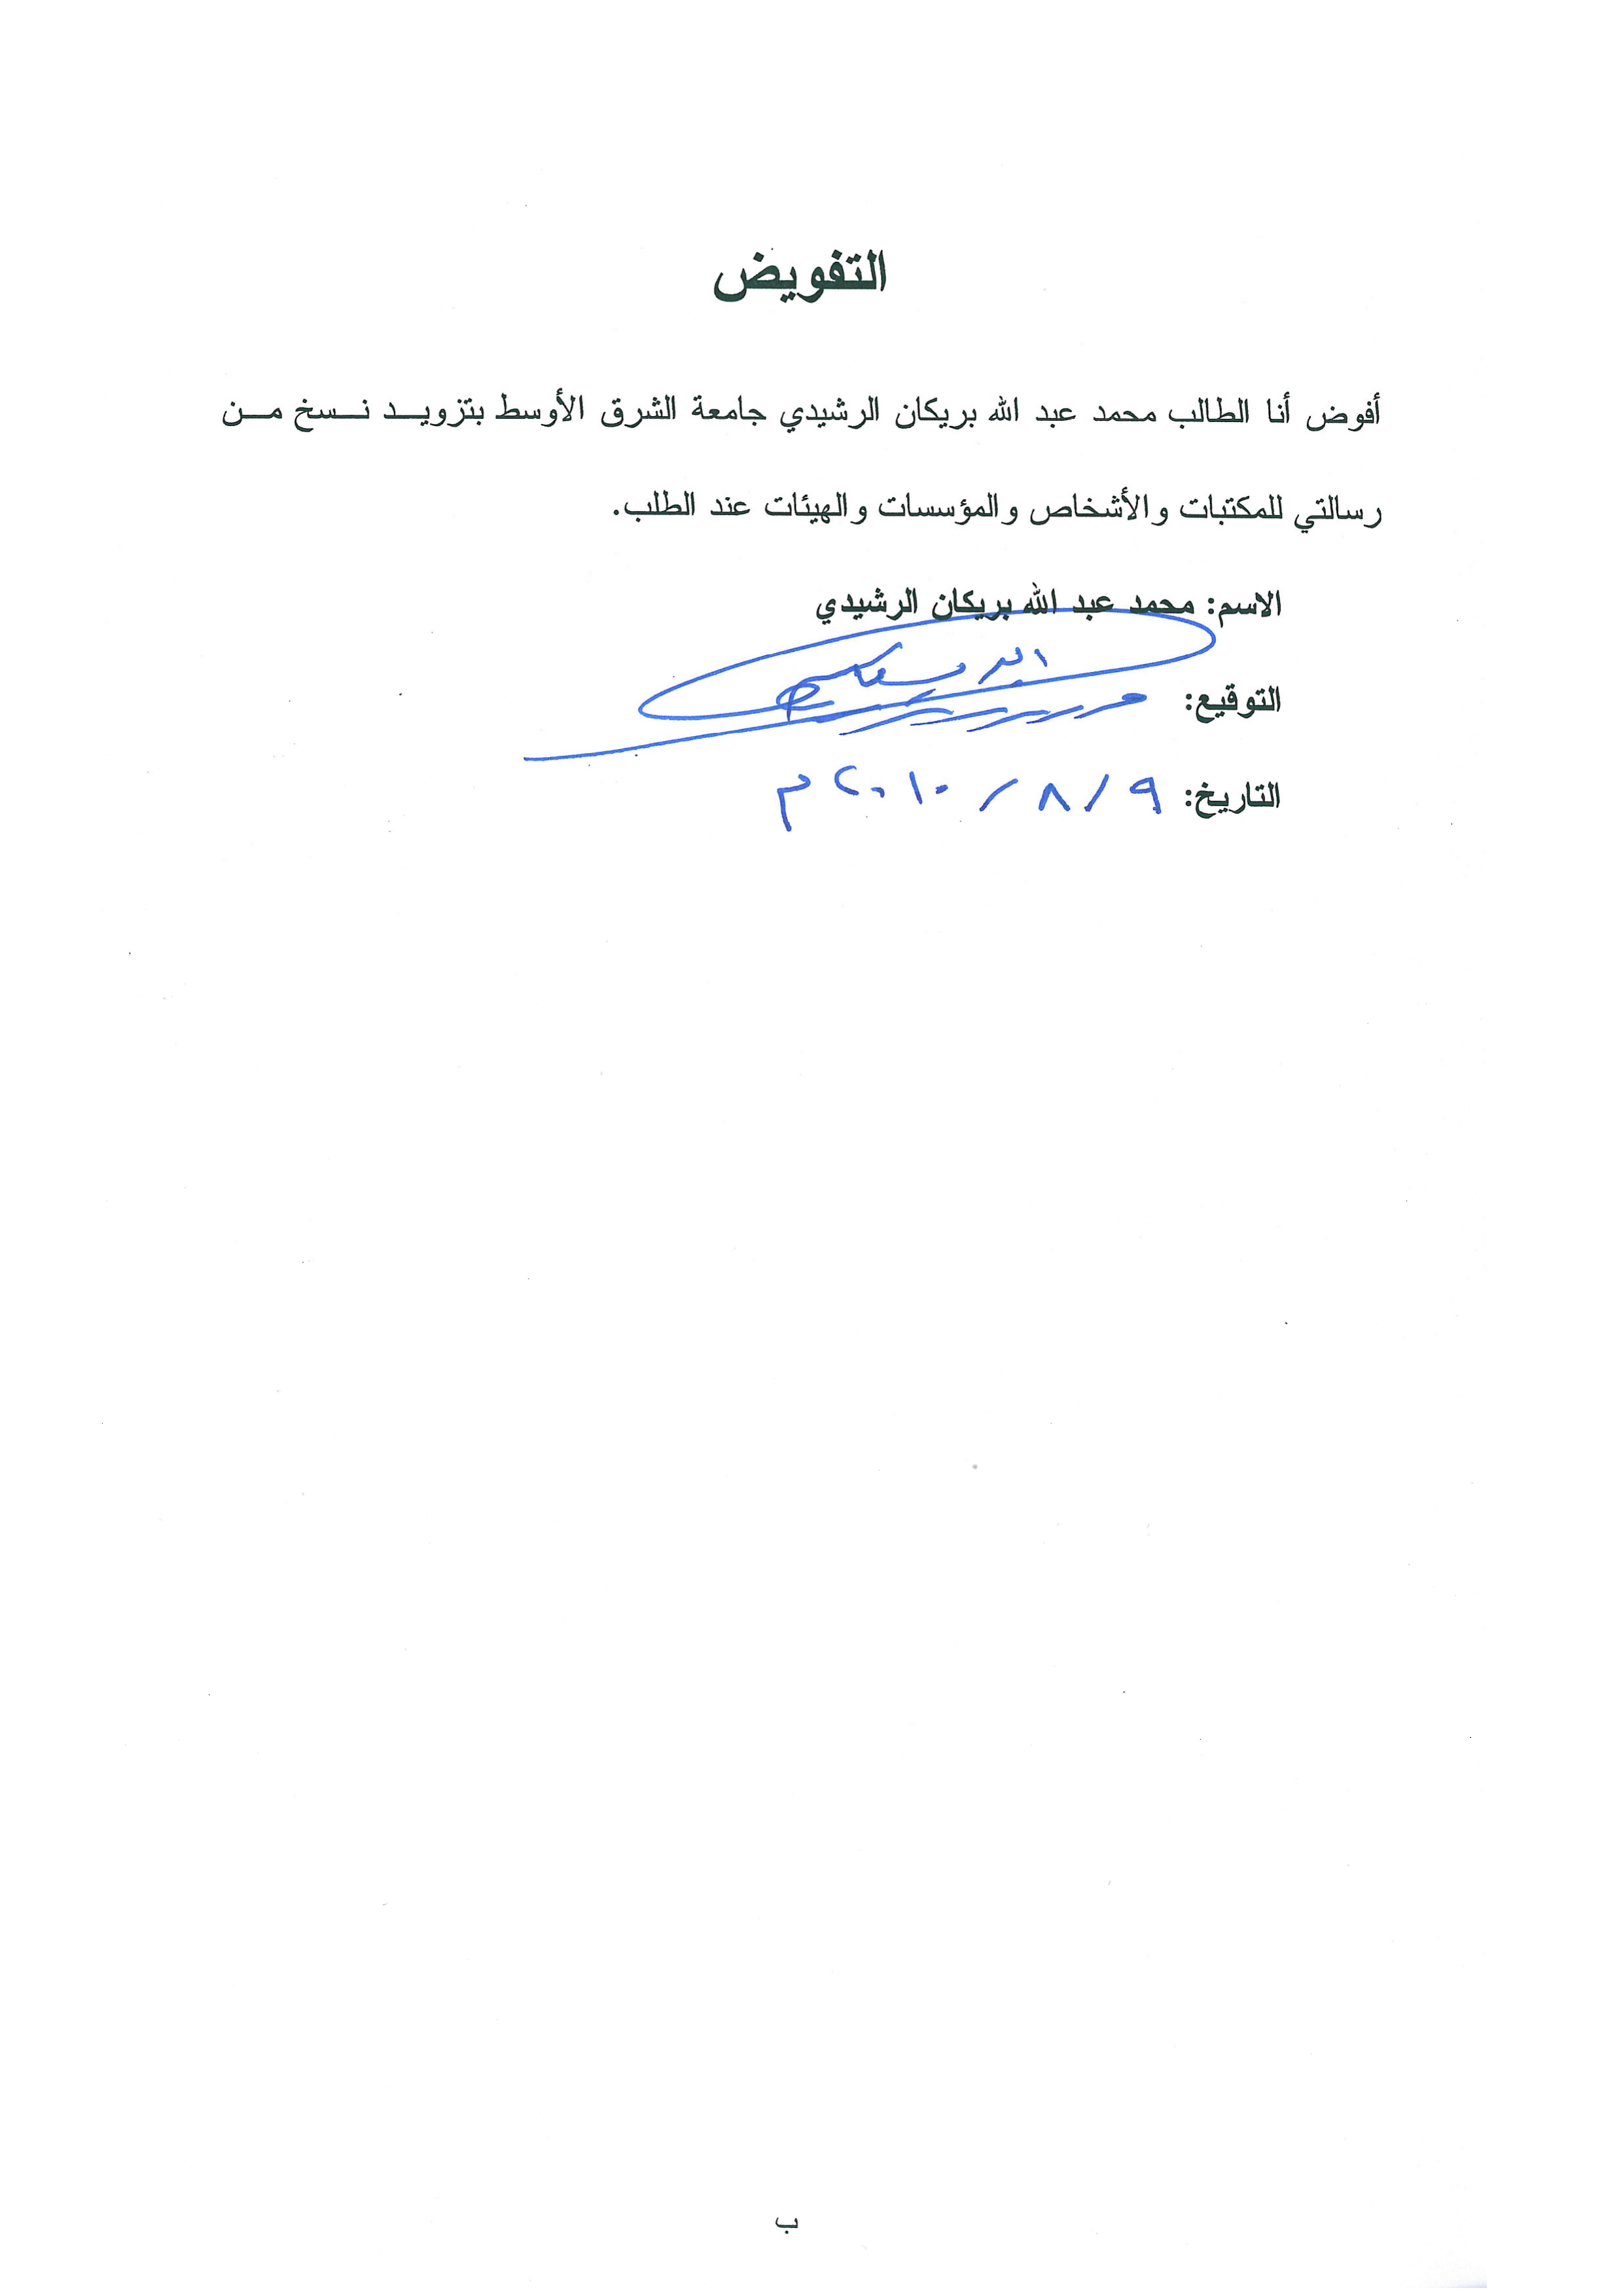 التفويض
أفوض أنا الطالب محمد عبد الله بريكان الرشيدي جامعة الشرق الأوسط بتزويد نسخ من
رسالتي للمكتبات والأشخاص والمؤسسات والهيئات عند الطلب.
الاسم: محمد عبد الله بريكان الرشيدي
التوقيع:
التاريخ: ٩ / ٨ / ٢٠١٠ م
ب